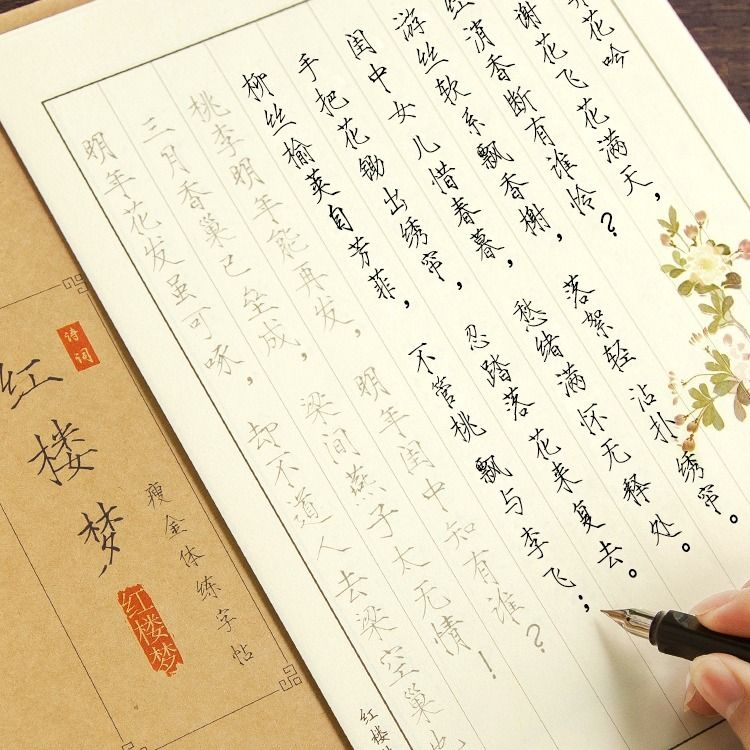 花吟
谢花飞花满天，
红消香断有谁怜？
游丝软系飘香榭，落絮轻沾扑绣帘。
闺中女儿惜春暮，愁绪满怀无释处。
手把花锄出绣帘，忍踏落花来复去。
柳丝榆荚自芳菲，不管桃飘与李飞；
桃李明年能再发，明年闺中知有谁？
三月香巢已垒成，梁间燕子太无情！
明年花发虽可啄，却不道人去梁空巢也
红楼
诗词
红楼梦
瘦金体练字帖
红楼梦